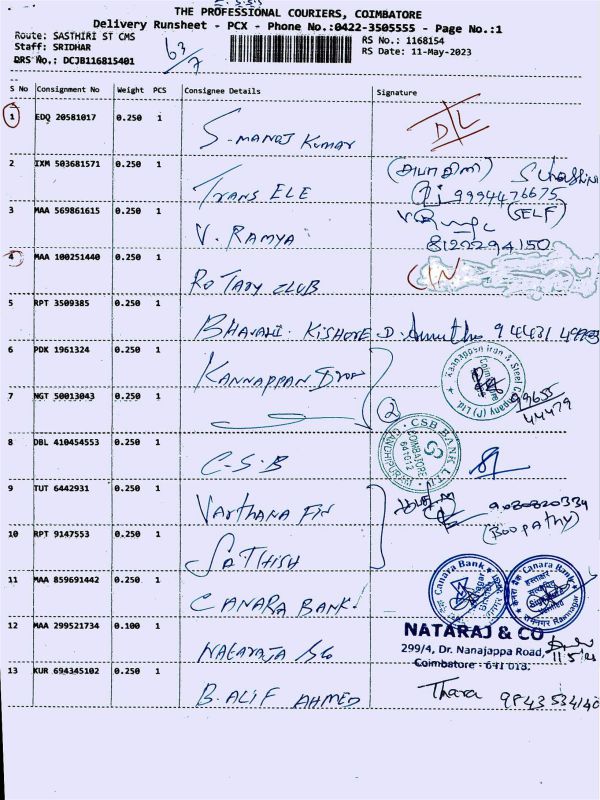 THE PROFESSIONAL COURIERS, COIMBATORE
Delivery Runsheet - PCX - Phone No.:0422-3505555 - Page No.:1
Route: SASTHIRI ST CMS
Staff: SRIDHAR
DRS No.: DCJB116815401
63/7
RS No.: 1168154
RS Date: 11-May-2023
S No Consignment No Weight PCS Consignee Details Signature
1 EDQ 20581017 0.250 1 S-MANOJ KUMAR D/L
2 IXM 503681571 0.250 1 TRANS ELE 9994476675
3 MAA 569861615 0.250 1 V. RAMYA (SELF) 8122294150
4 MAA 100251440 0.250 1 ROTARY CLUB
5 RPT 3509385 0.250 1 BHAVANI. KISHORE D.
6 PDK 1961324 0.250 1 KANNAPPAN Kaanappan Iron & Steel Company (P) Ltd. Coimbatore
7 NGT 50013043 0.250 1 2 99655 44479
8 DBL 410454553 0.250 1 C-S-B CSB BANK LTD. COIMBATORE 641012 GANDHIPURAM
9 TUT 6442931 0.250 1 Varthana Fin
10 RPT 9147553 0.250 1 SATHISH (BOOPATHY)
11 MAA 859691442 0.250 1 CANARA BANK Canara Bank Canara Bank Ramnagar
12 MAA 299521734 0.100 1 NATARAJA &Co NATARAJ & CO
299/4, Dr. Nanajappa Road,
Coimbatore - 641 018.
13 KUR 694345102 0.250 1 B. ALIF AHMED Thara 9843534140